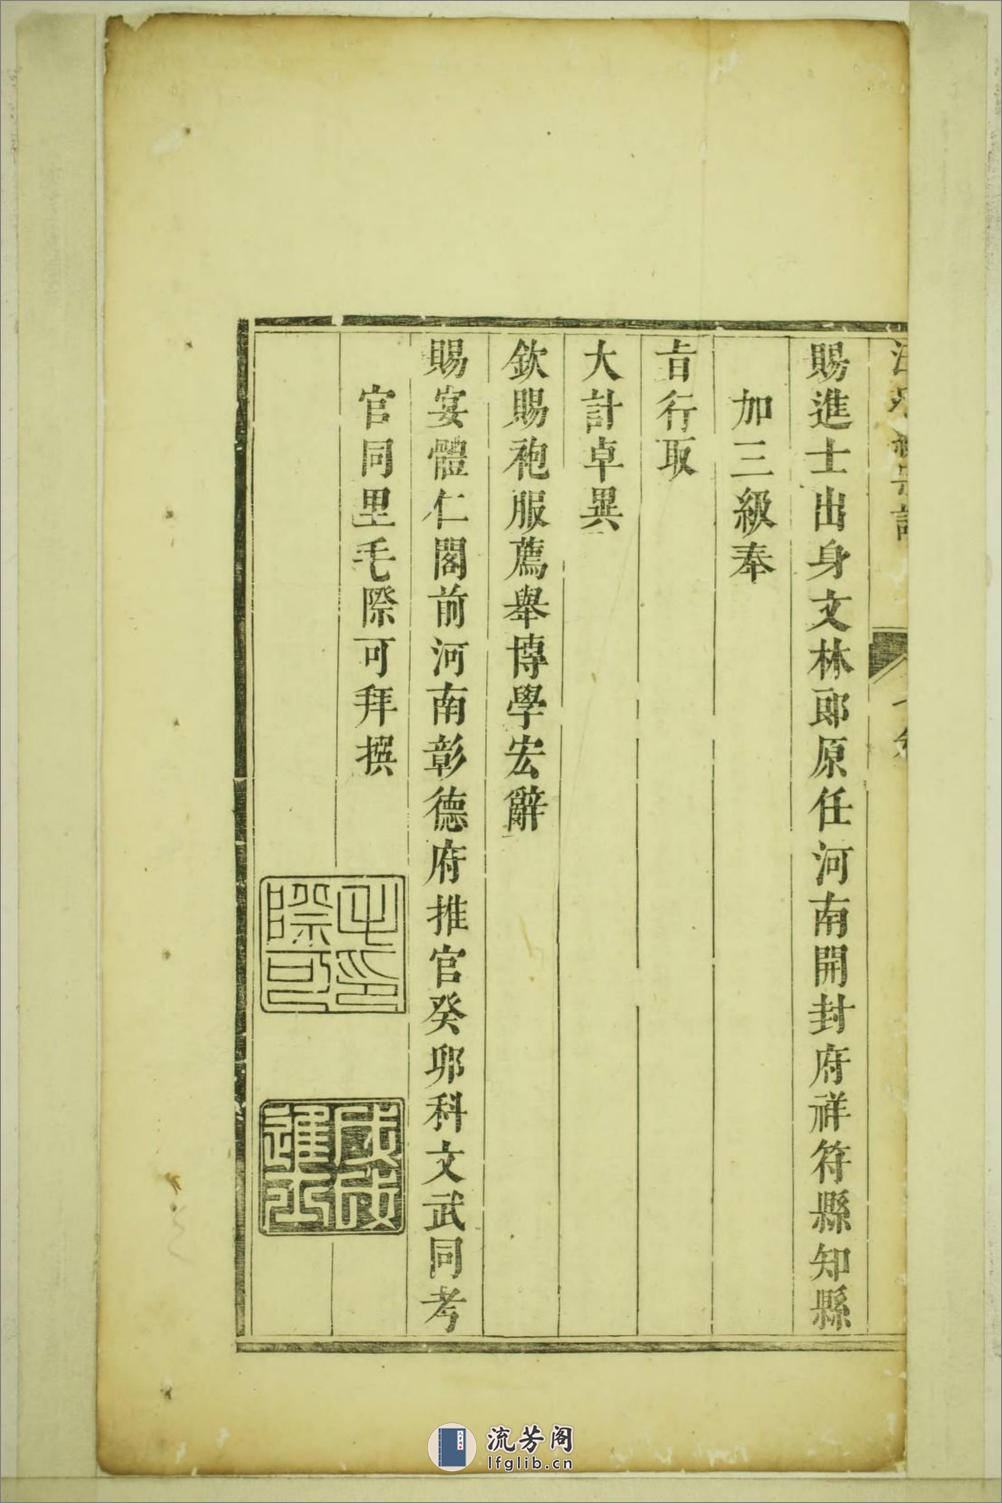 賜進士出身文林郎原任河南開封府祥符縣知縣
加三級奉
旨行取
大計卓異
欽賜袍服薦舉博學宏辭
賜宴體仁閣前河南彰德府推官癸卯科文武同考
官同里毛際可拜撰
毛際可印
戊戌進士
流芳阁
lfglib.cn